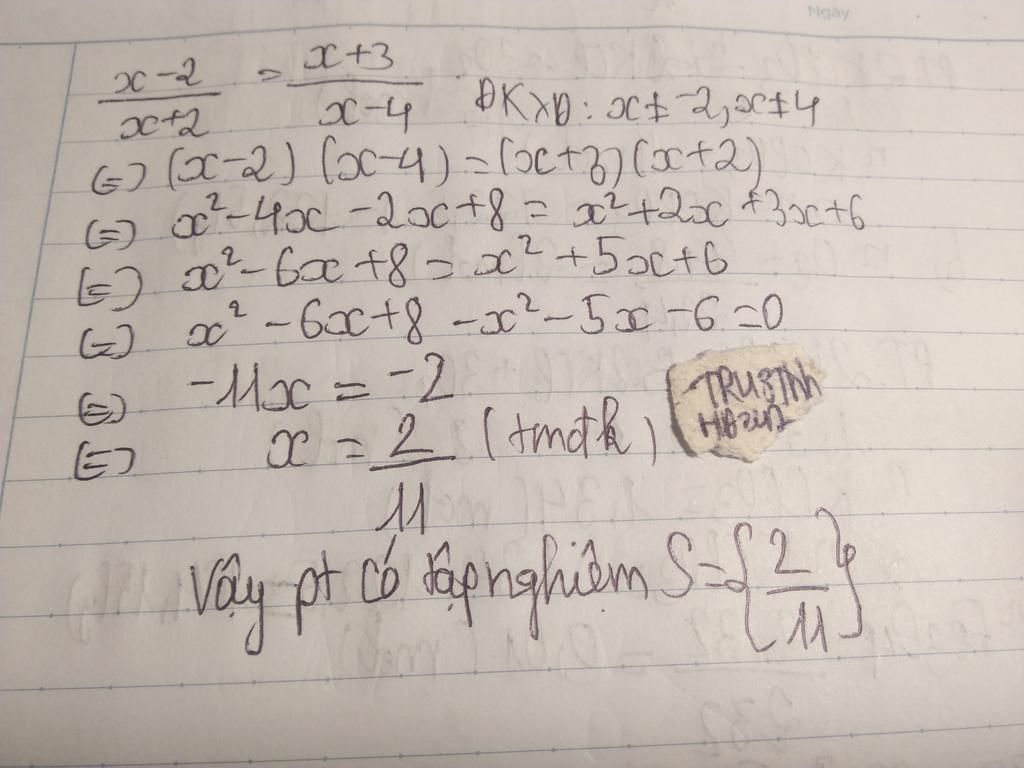 Ngày
x-2/x+2 = x+3/x-4 ĐKXĐ: x≠-2, x≠4
(=) (x-2) (x-4) = (x+3)(x+2)
(=) x²-4x-2x+8 = x²+2x+3x+6
(=) x²-6x+8 = x²+5x+6
(=) x²-6x+8-x²-5x-6=0
(=) -11x = -2
(=) x = 2/11 (tmđk)
Vậy pt có tập nghiệm S={2/11}